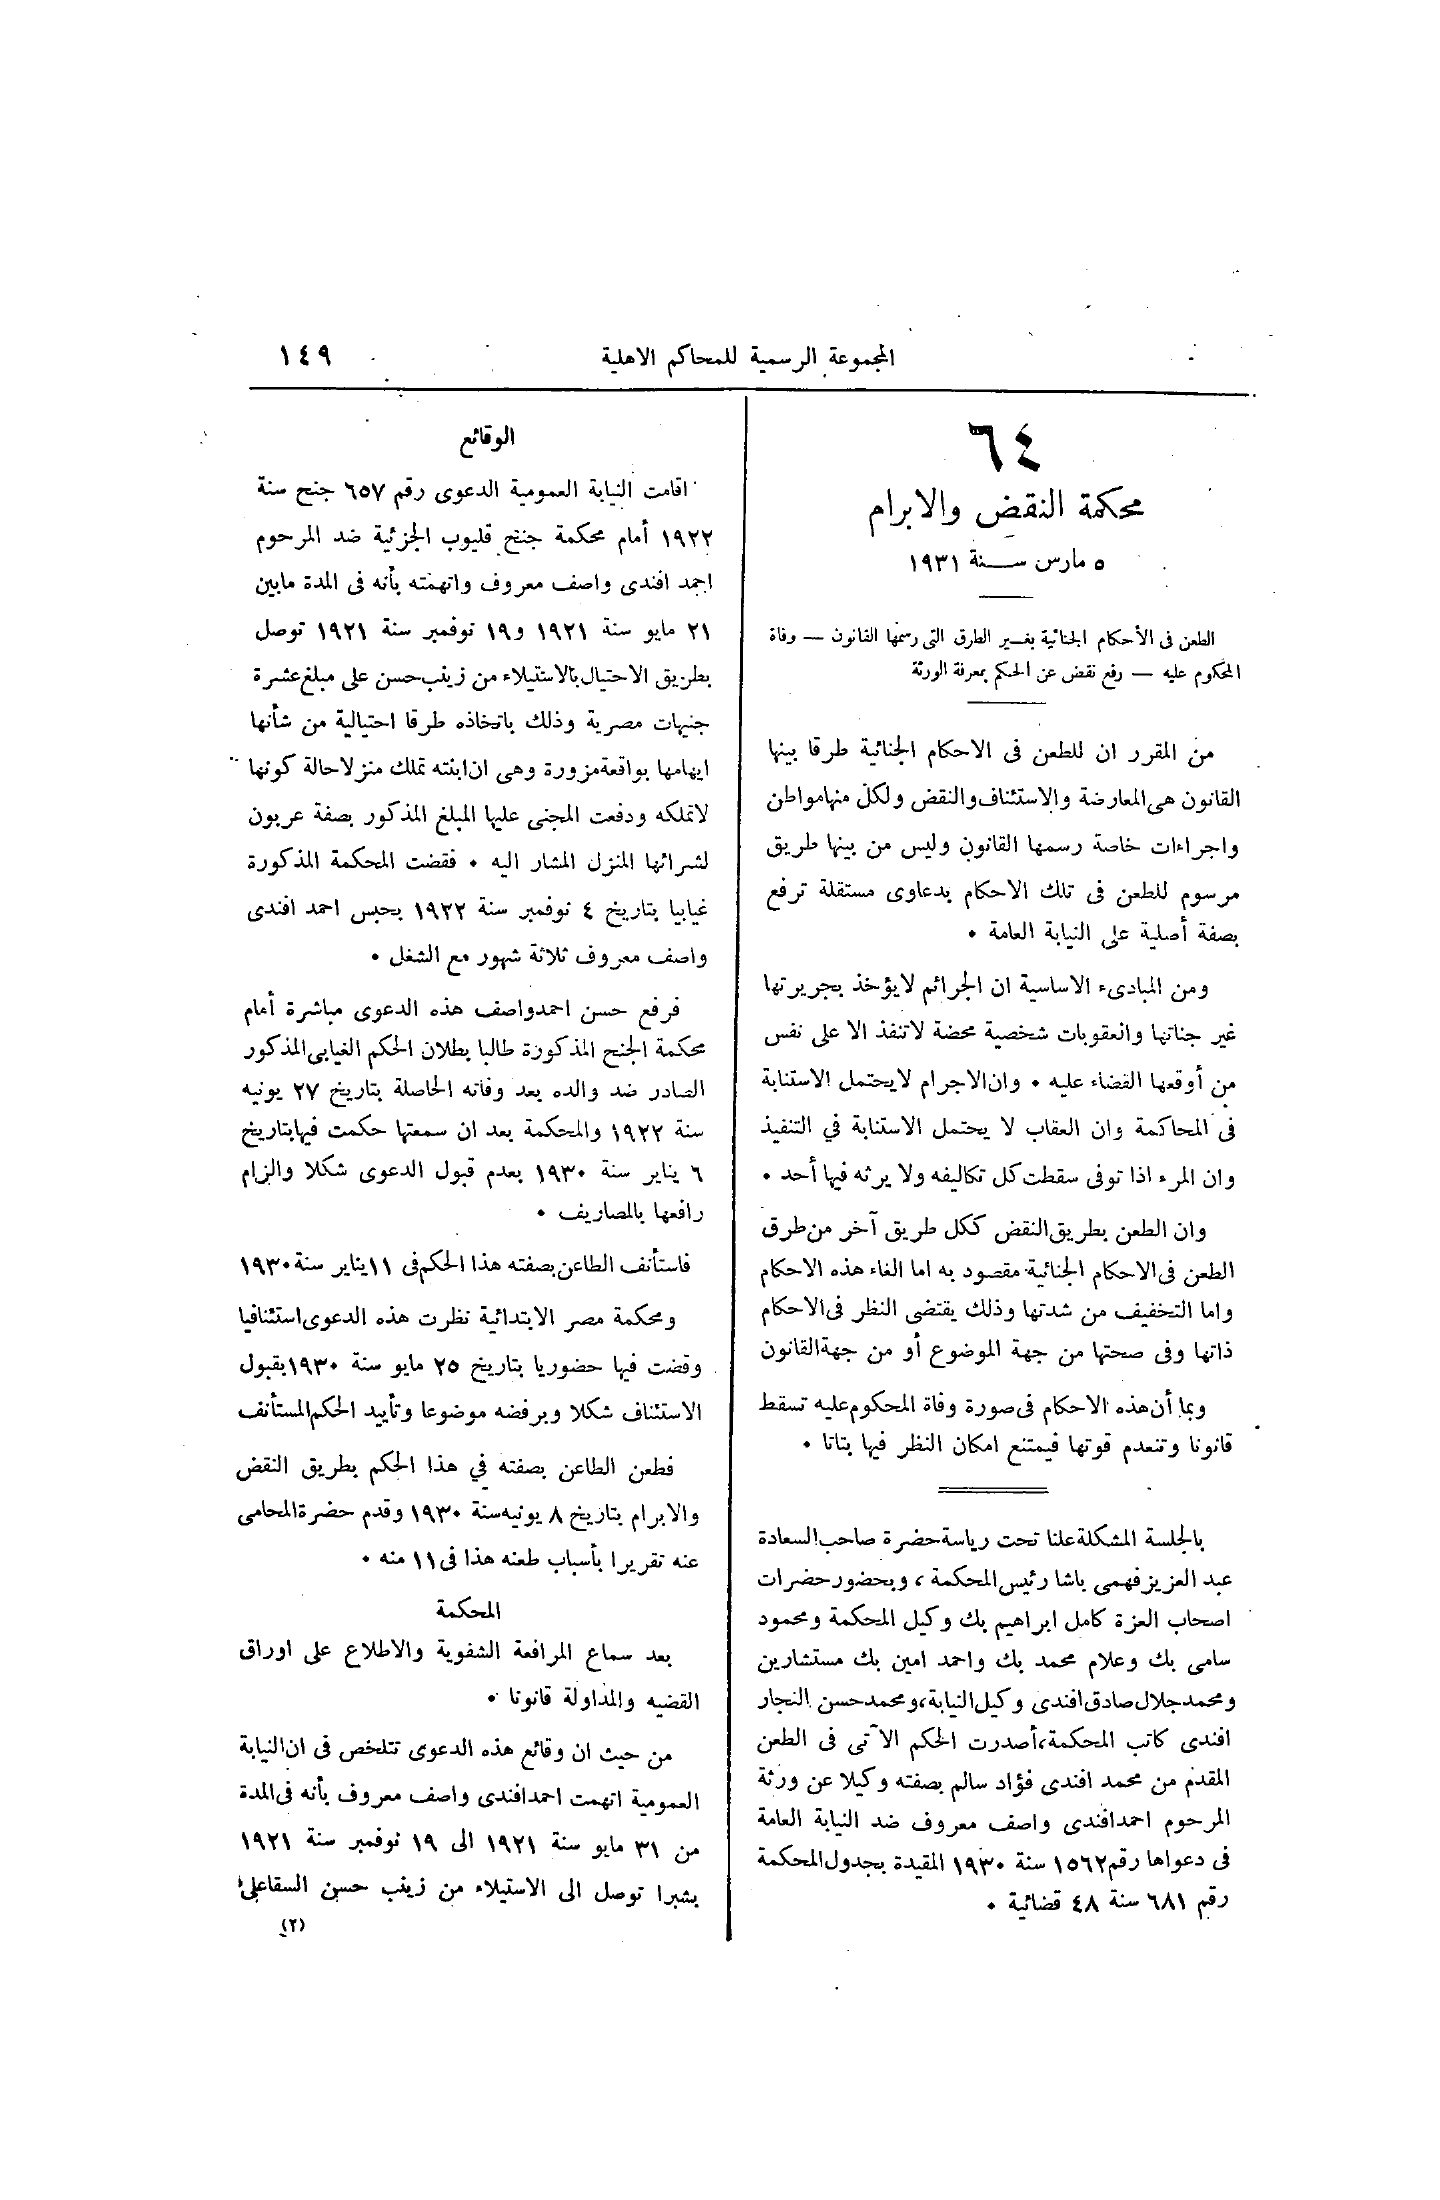 المجموعة الرسمية للمحاكم الاهلية
١٤٩
٦٤
محكمة النقض والابرام
٥ مارس سنة ١٩٣١
الطعن فى الأحكام الجنائية بغير الطرق التى رسمها القانون — وفاة
المحكوم عليه — رفع نقض عن الحكم بمعرفة الورثة
من المقرر ان للطعن فى الاحكام الجنائية طرقا بينها
القانون هى المعارضة والاستئناف والنقض ولكل منها مواطن
واجراءات خاصة رسمها القانون وليس من بينها طريق
مرسوم للطعن فى تلك الاحكام بدعاوى مستقلة ترفع
بصفة أصلية على النيابة العامة •
ومن المبادىء الاساسية ان الجرائم لا يؤخذ بجريرتها
غير جناتها والعقوبات شخصية محضة لا تنفذ الا على نفس
من أوقعها القضاء عليه • وان الاجرام لا يحتمل الاستنابة
فى المحاكمة وان العقاب لا يحتمل الاستنابة في التنفيذ
وان المرء اذا توفى سقطت كل تكاليفه ولا يرثه فيها أحد •
وان الطعن بطريق النقض ككل طريق آخر من طرق
الطعن فى الاحكام الجنائية مقصود به اما الغاء هذه الاحكام
واما التخفيف من شدتها وذلك يقتضى النظر فى الاحكام
ذاتها وفى صحتها من جهة الموضوع أو من جهة القانون
وبما أن هذه الاحكام فى صورة وفاة المحكوم عليه تسقط
قانونا وتنعدم قوتها فيمتنع امكان النظر فيها بتاتا •
بالجلسة المشكلة علنا تحت رياسة حضرة صاحب السعادة
عبد العزيز فهمى باشا رئيس المحكمة ، وبحضور حضرات
اصحاب العزة كامل ابراهيم بك وكيل المحكمة ومحمود
سامى بك وعلام محمد بك واحمد امين بك مستشارين
ومحمد جلال صادق افندى وكيل النيابة ، ومحمد حسن النجار
افندى كاتب المحكمة ، أصدرت الحكم الآتى فى الطعن
المقدم من محمد افندى فؤاد سالم بصفته وكيلا عن ورثة
المرحوم احمد افندى واصف معروف ضد النيابة العامة
فى دعواها رقم ١٥٦٢ سنة ١٩٣٠ المقيدة بجدول المحكمة
رقم ٦٨١ سنة ٤٨ قضائية •
الوقائع
اقامت النيابة العمومية الدعوى رقم ٦٥٧ جنح سنة
١٩٢٢ أمام محكمة جنح قليوب الجزئية ضد المرحوم
احمد افندى واصف معروف واتهمته بأنه فى المدة مابين
٢١ مايو سنة ١٩٢١ و١٩ نوفمبر سنة ١٩٢١ توصل
بطريق الاحتيال بالاستيلاء من زينب حسن على مبلغ عشرة
جنيهات مصرية وذلك باتخاذه طرقا احتيالية من شأنها
ايهامها بواقعة مزورة وهى ان ابنته تملك منزلا حالة كونها
لاتملكه ودفعت المجنى عليها المبلغ المذكور بصفة عربون
لشرائها المنزل المشار اليه • فقضت المحكمة المذكورة
غيابيا بتاريخ ٤ نوفمبر سنة ١٩٢٢ بحبس احمد افندى
واصف معروف ثلاثة شهور مع الشغل •
فرفع حسن احمد واصف هذه الدعوى مباشرة أمام
محكمة الجنح المذكورة طالبا بطلان الحكم الغيابى المذكور
الصادر ضد والده بعد وفاته الحاصلة بتاريخ ٢٧ يونيه
سنة ١٩٢٢ والمحكمة بعد ان سمعتها حكمت فيها بتاريخ
٦ يناير سنة ١٩٣٠ بعدم قبول الدعوى شكلا والزام
رافعها بالمصاريف •
فاستأنف الطاعن بصفته هذا الحكم فى ١١ يناير سنة ١٩٣٠
ومحكمة مصر الابتدائية نظرت هذه الدعوى استئنافيا
وقضت فيها حضوريا بتاريخ ٢٥ مايو سنة ١٩٣٠ بقبول
الاستئناف شكلا وبرفضه موضوعا وتأييد الحكم المستأنف
فطعن الطاعن بصفته في هذا الحكم بطريق النقض
والابرام بتاريخ ٨ يونيه سنة ١٩٣٠ وقدم حضرة المحامى
عنه تقريرا بأسباب طعنه هذا فى ١١ منه •
المحكمة
بعد سماع المرافعة الشفوية والاطلاع على اوراق
القضيه والمداولة قانونا •
من حيث ان وقائع هذه الدعوى تتلخص فى ان النيابة
العمومية اتهمت احمد افندى واصف معروف بأنه فى المدة
من ٣١ مايو سنة ١٩٢١ الى ١٩ نوفمبر سنة ١٩٢١
بشبرا توصل الى الاستيلاء من زينب حسن السقا على
(٢)